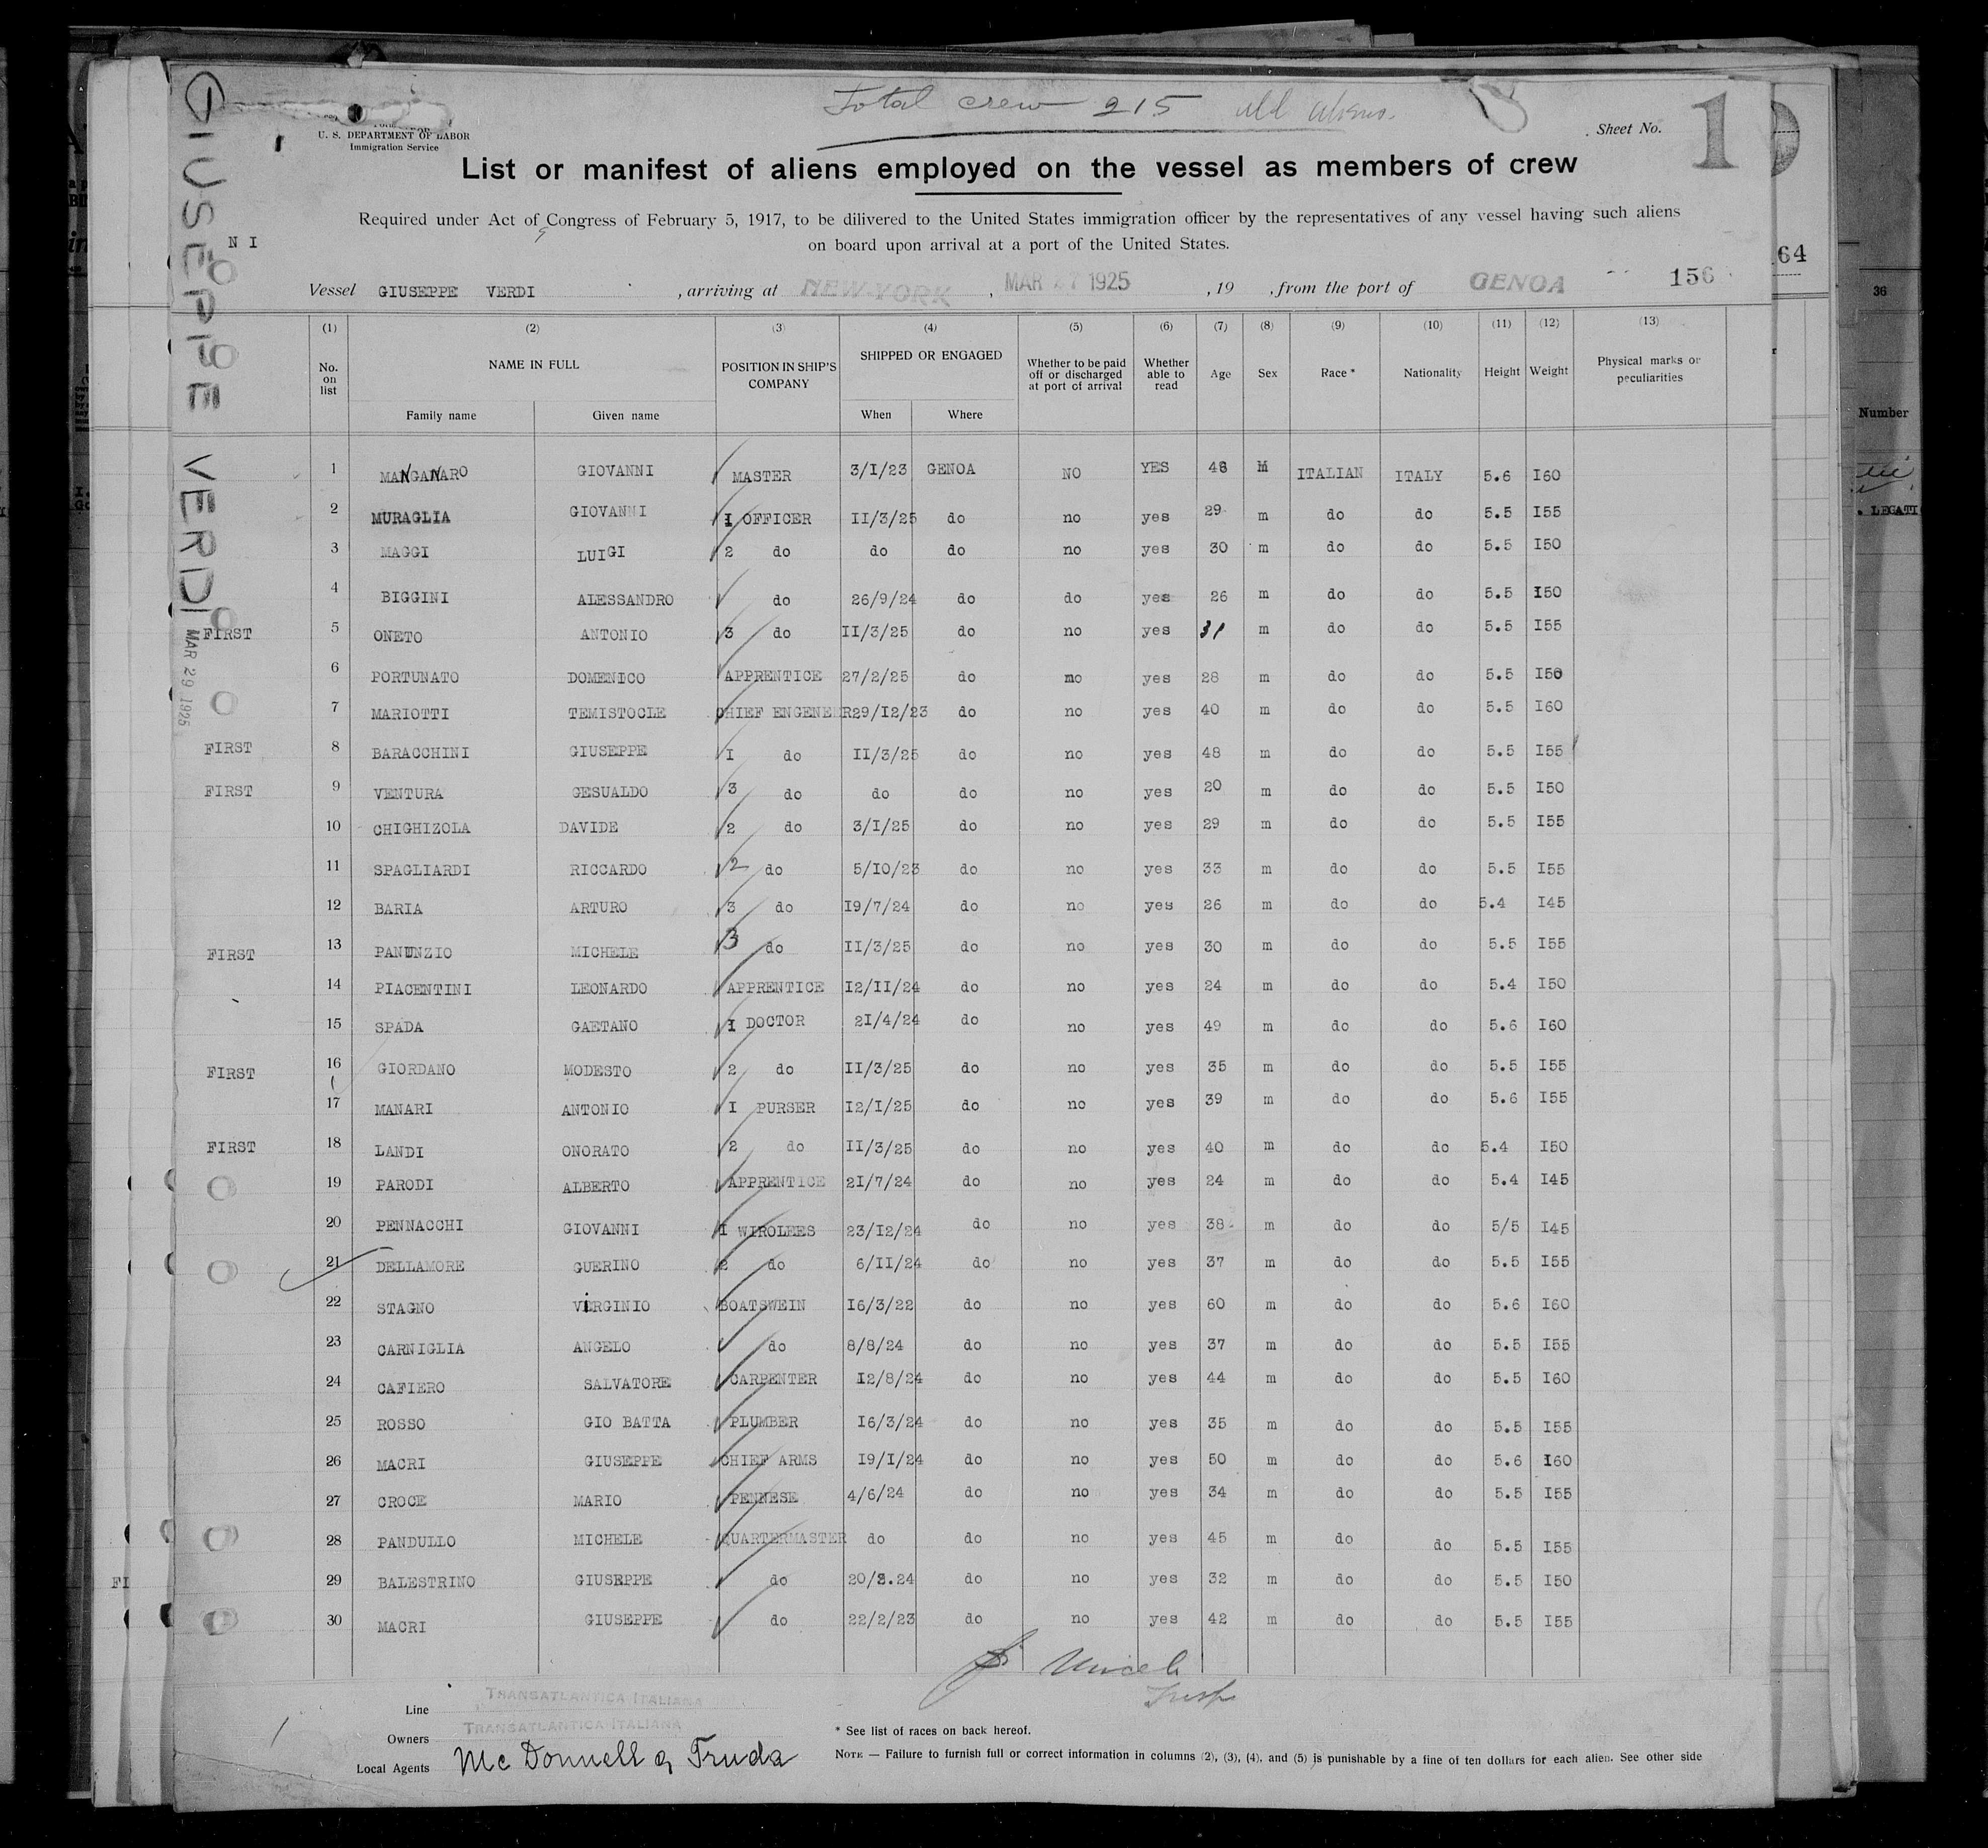 Total crew 215 all aliens.
U. S. DEPARTMENT OF LABOR
Immigration Service
Sheet No. 1
List or manifest of aliens employed on the vessel as members of crew
Required under Act of Congress of February 5, 1917, to be dilivered to the United States immigration officer by the representatives of any vessel having such aliens
on board upon arrival at a port of the United States.
N I
64
Vessel GIUSEPPE VERDI , arriving at NEW-YORK , MAR 27 1925 , 19 , from the port of GENOA 156
GIUSEPPE VERDI
MAR 29 1925
36
Number
(1) (2) (3) (4) (5) (6) (7) (8) (9) (10) (11) (12) (13)
No. on list NAME IN FULL POSITION IN SHIP'S COMPANY SHIPPED OR ENGAGED Whether to be paid off or discharged at port of arrival Whether able to read Age Sex Race * Nationality Height Weight Physical marks or peculiarities
Family name Given name When Where
1 MANGANARO GIOVANNI MASTER 3/I/23 GENOA NO YES 48 M ITALIAN ITALY 5.6 I60
2 MURAGLIA GIOVANNI I OFFICER II/3/25 do no yes 29 m do do 5.5 I55
3 MAGGI LUIGI 2 do do do no yes 30 m do do 5.5 I50
4 BIGGINI ALESSANDRO do 26/9/24 do do yes 26 m do do 5.5 I50
FIRST 5 ONETO ANTONIO 3 do II/3/25 do no yes 31 m do do 5.5 I55
6 PORTUNATO DOMENICO APPRENTICE 27/2/25 do no yes 28 m do do 5.5 I50
7 MARIOTTI TEMISTOCLE CHIEF ENGENEER 29/I2/23 do no yes 40 m do do 5.5 I60
FIRST 8 BARACCHINI GIUSEPPE I do II/3/25 do no yes 48 m do do 5.5 I55
FIRST 9 VENTURA GESUALDO 3 do do do no yes 20 m do do 5.5 I50
10 CHIGHIZOLA DAVIDE 2 do 3/I/25 do no yes 29 m do do 5.5 I55
11 SPAGLIARDI RICCARDO 2 do 5/IO/23 do no yes 33 m do do 5.5 I55
12 BARIA ARTURO 3 do I9/7/24 do no yes 26 m do do 5.4 I45
FIRST 13 PANUNZIO MICHELE 3 do II/3/25 do no yes 30 m do do 5.5 I55
14 PIACENTINI LEONARDO APPRENTICE I2/II/24 do no yes 24 m do do 5.4 I50
15 SPADA GAETANO I DOCTOR 2I/4/24 do no yes 49 m do do 5.6 I60
FIRST 16 GIORDANO MODESTO 2 do II/3/25 do no yes 35 m do do 5.5 I55
17 MANARI ANTONIO I PURSER I2/I/25 do no yes 39 m do do 5.6 I55
FIRST 18 LANDI ONORATO 2 do II/3/25 do no yes 40 m do do 5.4 I50
19 PARODI ALBERTO APPRENTICE 2I/7/24 do no yes 24 m do do 5.4 I45
20 PENNACCHI GIOVANNI I WIROLEES 23/I2/24 do no yes 38 m do do 5/5 I45
21 DELLAMORE GUERINO 2 do 6/II/24 do no yes 37 m do do 5.5 I55
22 STAGNO VIRGINIO BOATSWEIN I6/3/22 do no yes 60 m do do 5.6 I60
23 CARNIGLIA ANGELO do 8/8/24 do no yes 37 m do do 5.5 I55
24 CAFIERO SALVATORE CARPENTER I2/8/24 do no yes 44 m do do 5.5 I60
25 ROSSO GIO BATTA PLUMBER I6/3/24 do no yes 35 m do do 5.5 I55
26 MACRI GIUSEPPE CHIEF ARMS I9/I/24 do no yes 50 m do do 5.6 I60
27 CROCE MARIO PENNESE 4/6/24 do no yes 34 m do do 5.5 I55
28 PANDULLO MICHELE QUARTERMASTER do do no yes 45 m do do 5.5 I55
29 BALESTRINO GIUSEPPE do 20/3.24 do no yes 32 m do do 5.5 I50
30 MACRI GIUSEPPE do 22/2/23 do no yes 42 m do do 5.5 I55
Line TRANSATLANTICA ITALIANA
Owners TRANSATLANTICA ITALIANA
Local Agents Mc Donnell & Truda
* See list of races on back hereof.
NOTE — Failure to furnish full or correct information in columns (2), (3), (4), and (5) is punishable by a fine of ten dollars for each alien. See other side